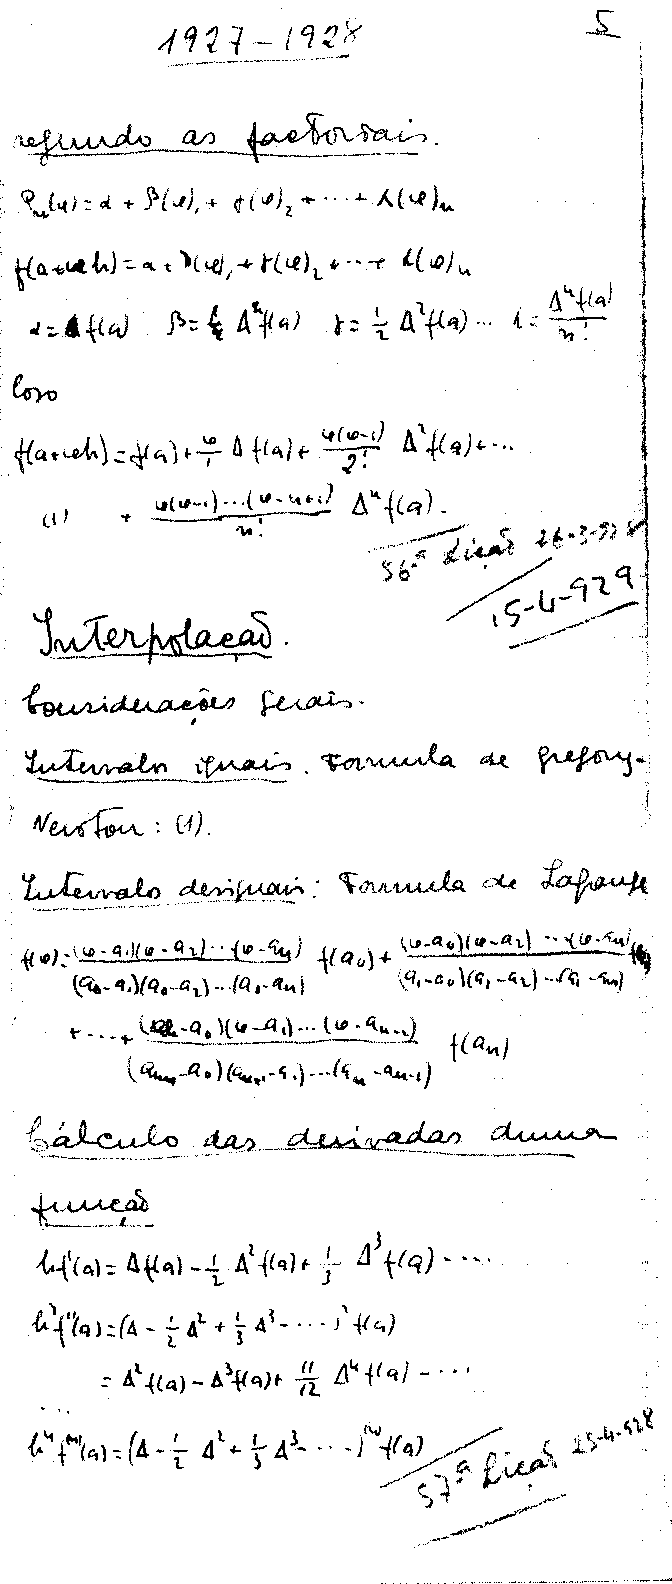 1927-1928
5
segundo as factoriais.
Pₙ(φ)=α + β(φ)₁ + γ(φ)₂ + ··· + λ(φ)ₙ
f(a+φh)=α+β(φ)₁+γ(φ)₂+···+λ(φ)ₙ
α=f(a) β=Δf(a) γ=1/2 Δ²f(a)··· λ=Δⁿf(a)/n!
logo
f(a+φh)=f(a)+φ/1 Δf(a)+φ(φ-1)/2! Δ²f(a)+···
(1) + φ(φ-1)···(φ-n+1)/n! Δⁿf(a).
56ª Lição 26-3-928
15-4-929
Interpolação.
Considerações gerais.
Intervalos iguais. Formula de Gregory-
Newton: (1).
Intervalos desiguais: Formula de Lagrange
f(φ)=(φ-a₁)(φ-a₂)···(φ-aₙ)/(a₀-a₁)(a₀-a₂)···(a₀-aₙ) f(a₀)+(φ-a₀)(φ-a₂)···(φ-aₙ)/(a₁-a₀)(a₁-a₂)···(a₁-aₙ)
+····+(φ-a₀)(φ-a₁)···(φ-aₙ₋₁)/(aₙ-a₀)(aₙ-a₁)···(aₙ-aₙ₋₁) f(aₙ)
Cálculo das derivadas duma
função
hf'(a)=Δf(a)-1/2 Δ²f(a)+1/3 Δ³f(a)-····
h²f''(a)=(Δ-1/2 Δ²+1/3 Δ³-····)² f(a)
=Δ²f(a)-Δ³f(a)+11/12 Δ⁴f(a)-···
...
hⁿf⁽ⁿ⁾(a)=(Δ-1/2 Δ²+1/3 Δ³-···-)⁽ⁿ⁾f(a)
57ª Lição 23-4-928